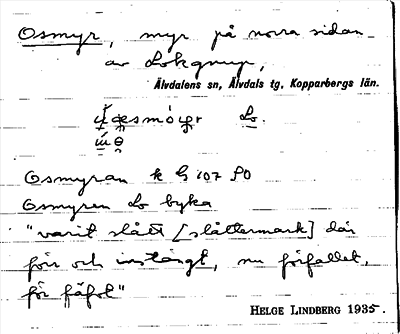 Osmyr, myr på norra sidan
av Lokgnupp,
Älvdalens sn, Älvdals tg, Kopparbergs län.
Lo.
Osmyran k G 107 SO
Osmyren Lo byka
"varit slått [slåttermark] där
förr och instängt, nu förfallet,
för fäfot"
HELGE LINDBERG 1935.